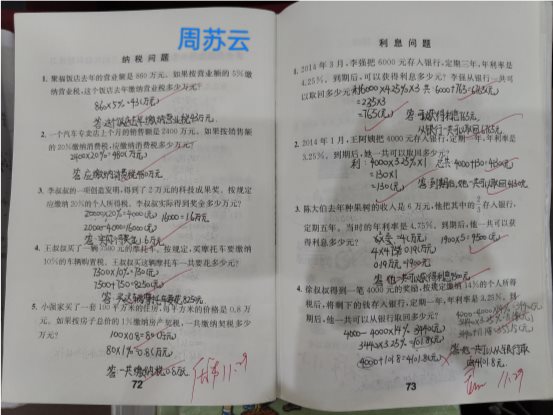 周苏云
纳税问题
1. 聚福饭店去年的营业额是860万元。如果按营业额的5%缴
纳营业税，这个饭店去年缴纳营业税多少万元？
860×5%=43(万元)
答：这个饭店去年缴纳营业税43万元。
2. 一个汽车专卖店上个月的销售额是2400万元。如果按销售额
的20%缴纳消费税，应缴纳消费税多少万元？
2400×20%=480(万元)
答：应缴纳消费税480万元。
3. 李叔叔的一项创造发明，得到了2万元的科技成果奖。按规定
应缴纳20%的个人所得税。李叔叔实际得到奖金多少万元？
20000×20%=4000(元)
16000=1.6万元
20000-4000=16000(元)
答：实际得到奖金1.6万元。
4. 王叔叔买了一辆7500元的摩托车。按规定，买摩托车要缴纳
10%的车辆购置税。王叔叔买这辆摩托车一共要花多少元？
7500×10%=750(元)
7500+750=8250(元)
答：买这车辆摩托车要花8250元
5. 小强家买了一套100平方米的住房，每平方米的价格是0.8万
元。如果按房子总价的1%缴纳房产契税，一共缴纳契税多少
万元？
100×0.8=80(万元)
80×1%=0.8(万元)
答：一共缴纳契税0.8万元。
72
11.29
利息问题
1. 2014年3月，李强把6000元存入银行，定期三年，年利率是
4.25%。到期后，可以获得利息多少元？李强从银行一共可
以取回多少元？
利:6000×4.25%×3
共:6000+765=6765(元)
=255×3
=765(元)
答：可以获得利息765元，
从银行一共可以取回6765元。
2. 2014年1月，王阿姨把4000元存入银行，定期一年，年利率是
3.25%。到期后，她一共可以取回多少元？
利：4000×3.25%×1
总共4000+130=4130(元)
=130×1
=130(元)
答：到期后，她一共可以取回4130元。
3. 陈大伯去年种苹果的收入是6万元，他把其中的2/3存入银行，
定期五年，当时的年利率是4.75%。到期后，他一共可以获
得利息多少元？
1900×5=9500(元)
0.19万元=1900元
答：他一共可以获得利息9500元
4. 徐叔叔得到一笔4000元的奖励，按规定缴纳14%的个人所得
税后，将剩下的钱存入银行，定期一年，年利率是3.25%。到
期后，他一共可以从银行取回多少元？
4000-4000×14%=3440(元)
3440×3.25%
73
11.29